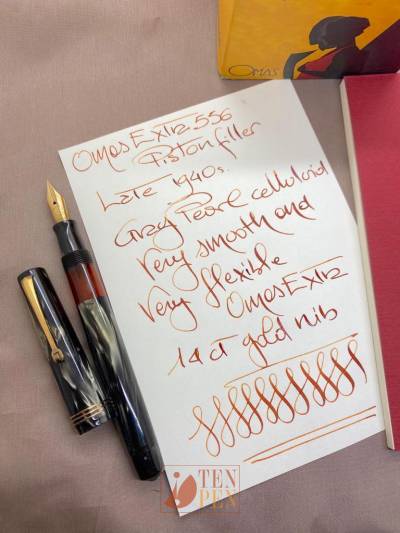 OMAS
Omas Extra 556
Piston filler
Late 1940s.
Gray Pearl celluloid
Very smooth and
Very flexible
Omas Extra
14 ct gold nib
TEN
PEN